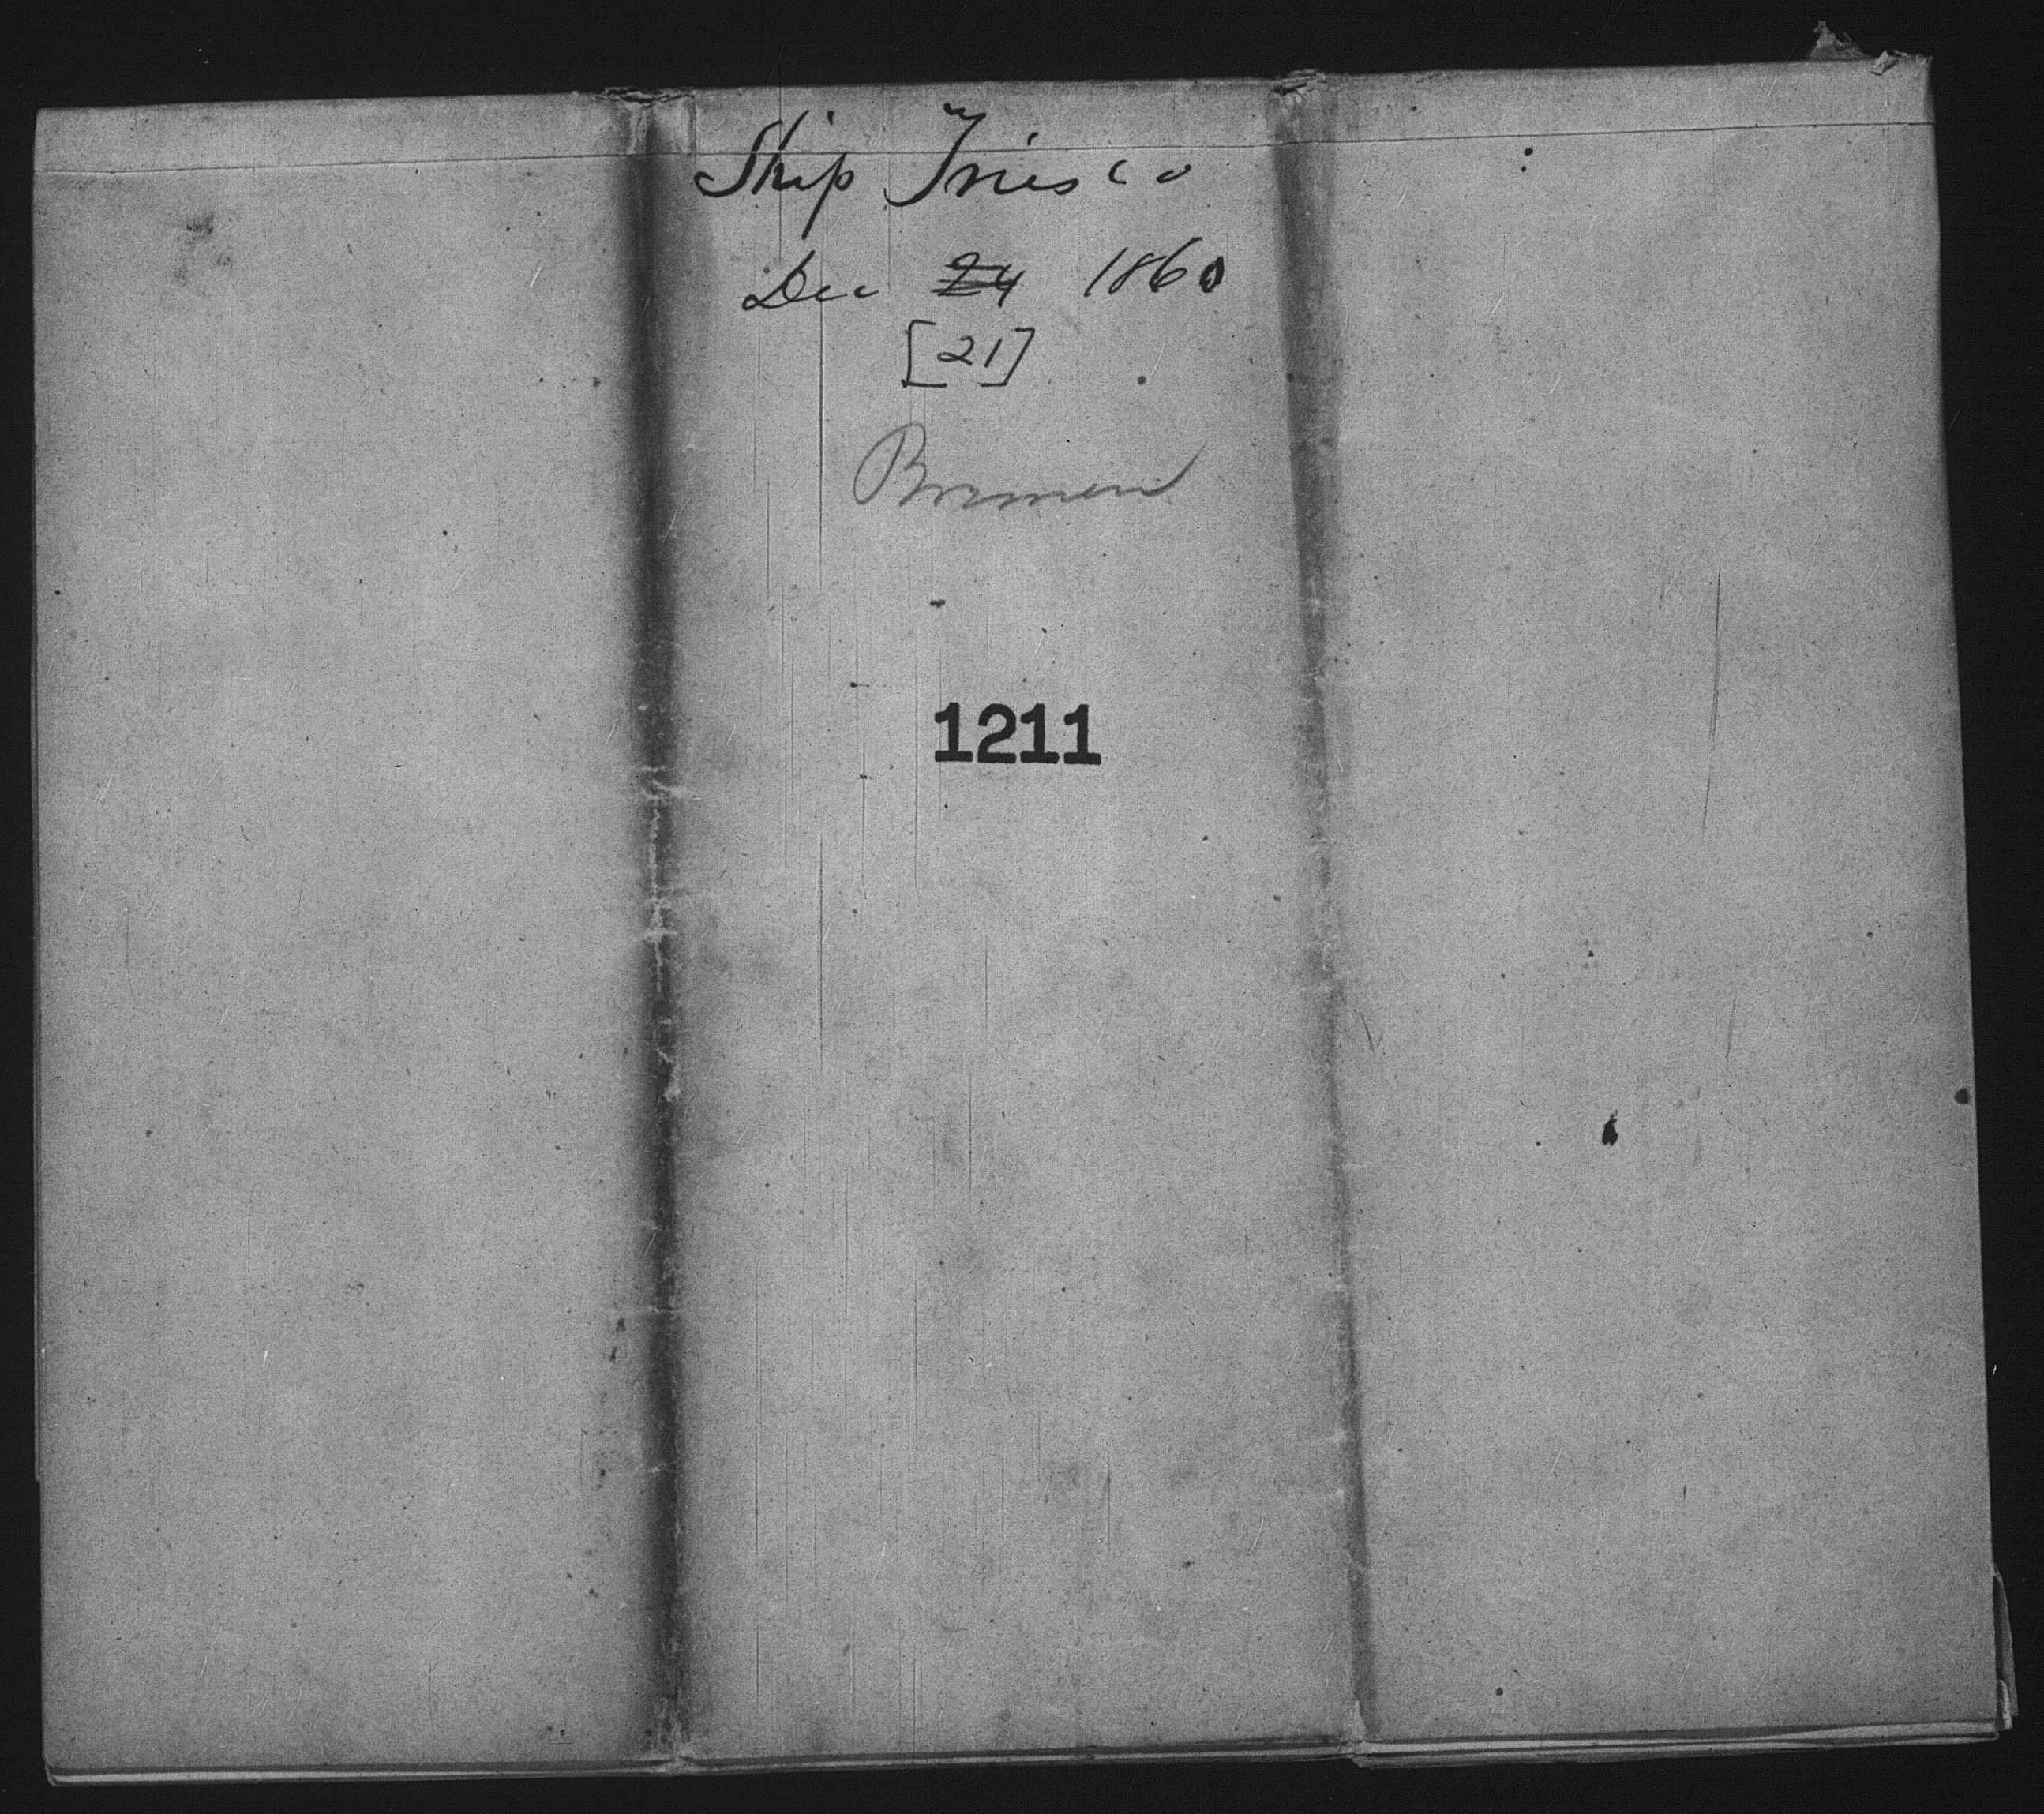 Ship Friesco
Dec 24 1860
[21]
Bremen
1211